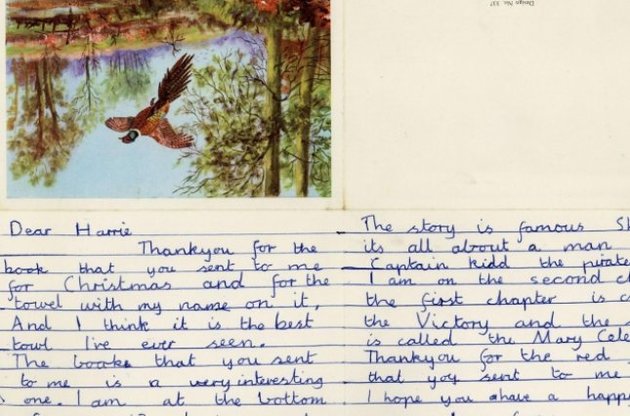 Design No. 337
Dear Harrie
Thankyou for the
book that you sent to me
for Christmas and for the
towel with my name on it,
And I think it is the best
towl I've ever seen.
The books that you sent
to me is a very interesting
one. I am at the bottom
The story is famous
its all about a man
Captain kidd the pirate
I am on the second
the first chapter is
the Victory and the
is called the Mary
Thankyou for the red
that yoy sent to me
I hope you ahave a happy